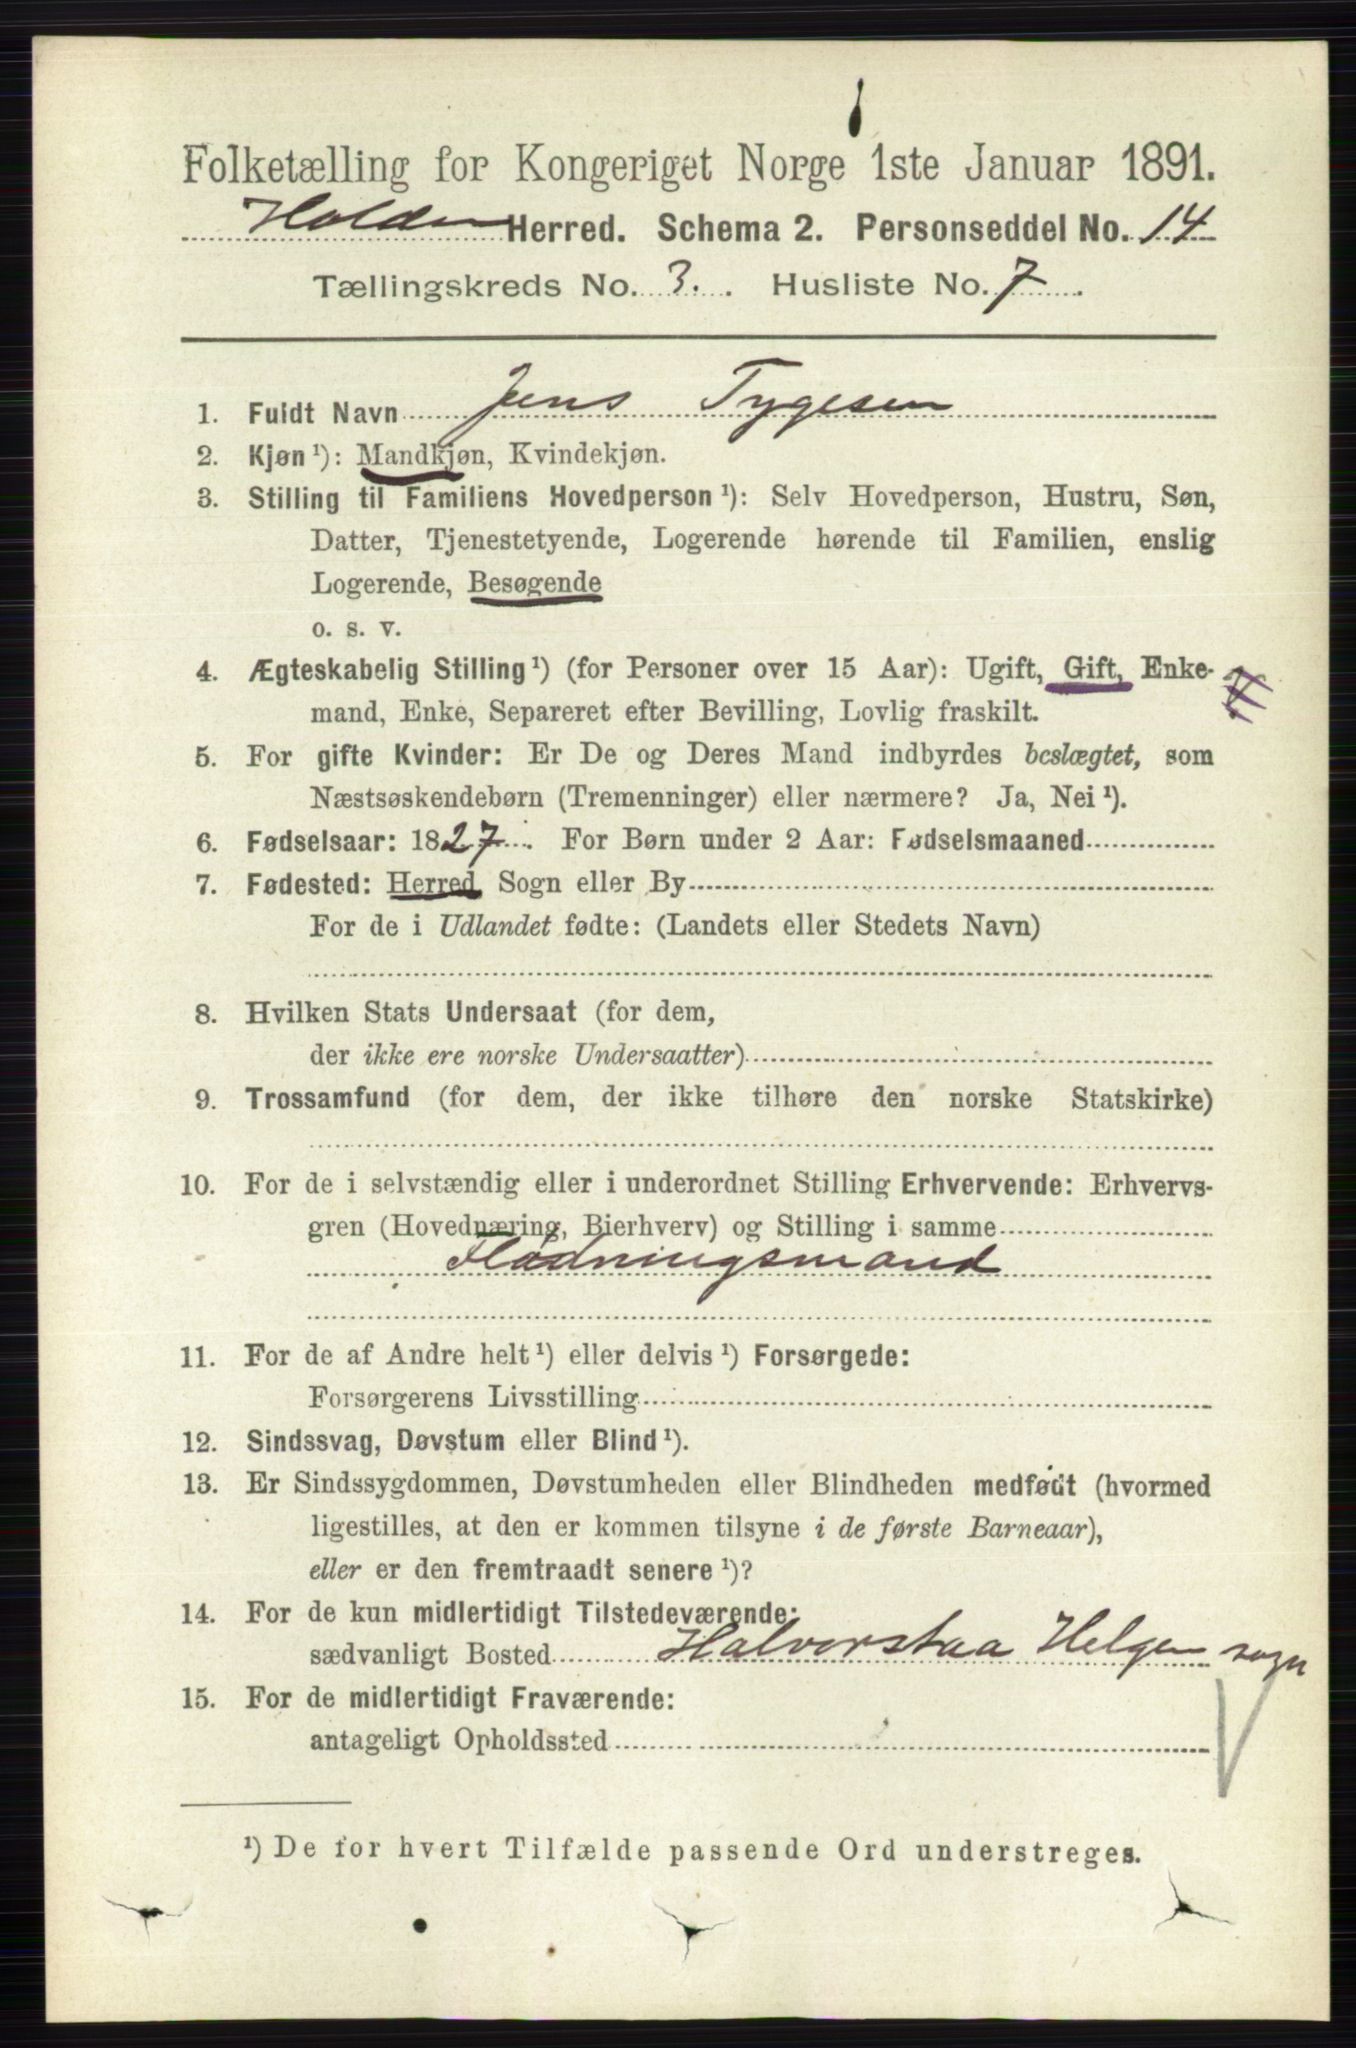 Folketælling for Kongeriget Norge 1ste Januar 1891.
Holden Herred. Schema 2. Personseddel No. 14
Tællingskreds No. 3. Husliste No. 7.
1. Fuldt Navn Jens Tygesen
2. Kjøn ¹): Mandkjøn, Kvindekjøn.
3. Stilling til Familiens Hovedperson ¹): Selv Hovedperson, Hustru, Søn,
Datter, Tjenestetyende, Logerende hørende til Familien, enslig
Logerende, Besøgende
o. s. v.
4. Ægteskabelig Stilling ¹) (for Personer over 15 Aar): Ugift, Gift, Enke-
mand, Enke, Separeret efter Bevilling, Lovlig fraskilt.
5. For gifte Kvinder: Er De og Deres Mand indbyrdes beslægtet, som
Næstsøskendebørn (Tremenninger) eller nærmere? Ja, Nei ¹).
6. Fødselsaar: 1827. For Børn under 2 Aar: Fødselsmaaned
7. Fødested: Herred Sogn eller By
For de i Udlandet fødte: (Landets eller Stedets Navn)
8. Hvilken Stats Undersaat (for dem,
der ikke ere norske Undersaatter)
9. Trossamfund (for dem, der ikke tilhøre den norske Statskirke)
10. For de i selvstændig eller i underordnet Stilling Erhvervende: Erhvervs-
gren (Hovednæring, Bierhverv) og Stilling i samme
Flødningsmand
11. For de af Andre helt ¹) eller delvis ¹) Forsørgede:
Forsørgerens Livsstilling
12. Sindssvag, Døvstum eller Blind ¹).
13. Er Sindssygdommen, Døvstumheden eller Blindheden medfødt (hvormed
ligestilles, at den er kommen tilsyne i de første Barneaar),
eller er den fremtraadt senere ¹)?
14. For de kun midlertidigt Tilstedeværende:
sædvanligt Bosted Halvorstaa Helgen sogn
15. For de midlertidigt Fraværende:
antageligt Opholdssted
¹) De for hvert Tilfælde passende Ord understreges.